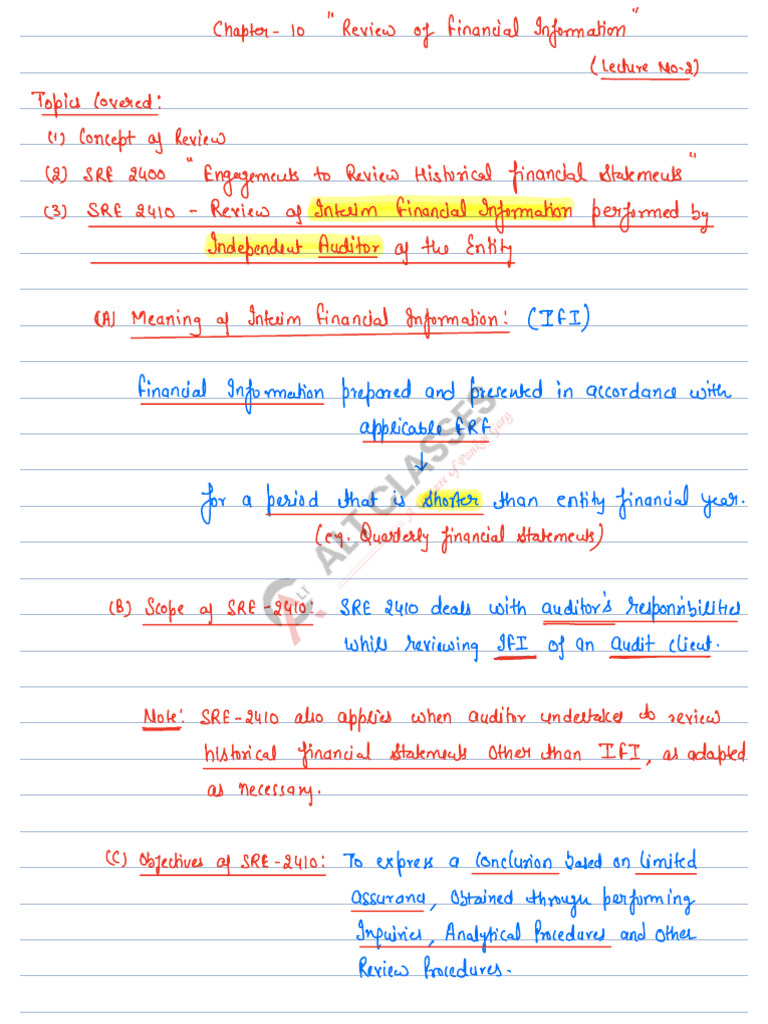 Chapter-10 "Review of Financial Information"
(Lecture No-2)
Topics Covered:
(1) Concept of Review
(2) SRE 2400 "Engagements to Review Historical Financial Statements"
(3) SRE 2410 - Review of Interim Financial Information performed by
Independent Auditor of the Entity
(A) Meaning of Interim Financial Information: (IFI)
Financial Information prepared and presented in accordance with
applicable FRF
↓
for a period that is shorter than entity financial year.
(eg. Quarterly Financial Statements)
(B) Scope of SRE-2410: SRE 2410 deals with auditor's responsibilities
while reviewing IFI of an audit client.
Note: SRE-2410 also applies when auditor undertakes to review
historical financial statements other than IFI, as adapted
as necessary.
(C) Objectives of SRE-2410: To express a Conclusion based on Limited
assurance, obtained through performing
Inquiries, Analytical Procedures and Other
Review Procedures.
ALT CLASSES
ALT